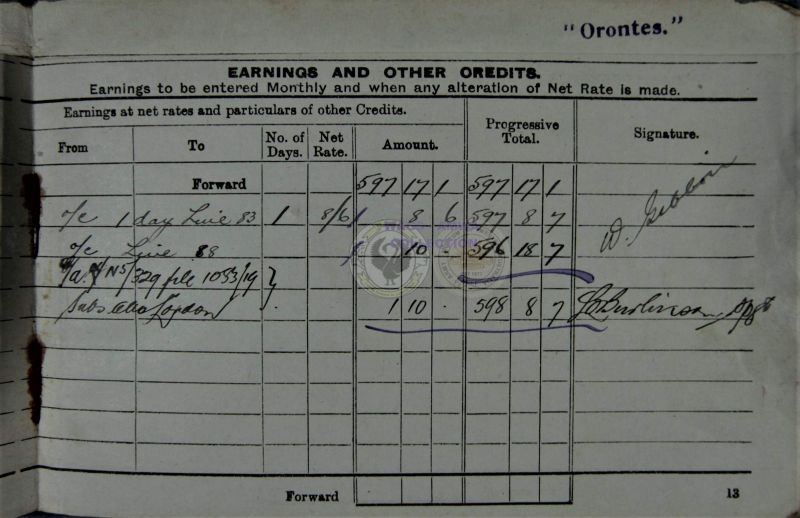 "Orontes."
EARNINGS AND OTHER CREDITS.
Earnings to be entered Monthly and when any alteration of Net Rate is made.
Earnings at net rates and particulars of other Credits.
From To No. of Days. Net Rate. Amount. Progressive Total. Signature.
Forward 597 17 1 597 17 1
o/c 1 day Line 83 1 8/6 8 6 597 8 7
o/c Line 88 10 - 596 18 7
W. Gibbon
329 file 1053/19
Subs London 1 10 . 598 8 7
Forward
13